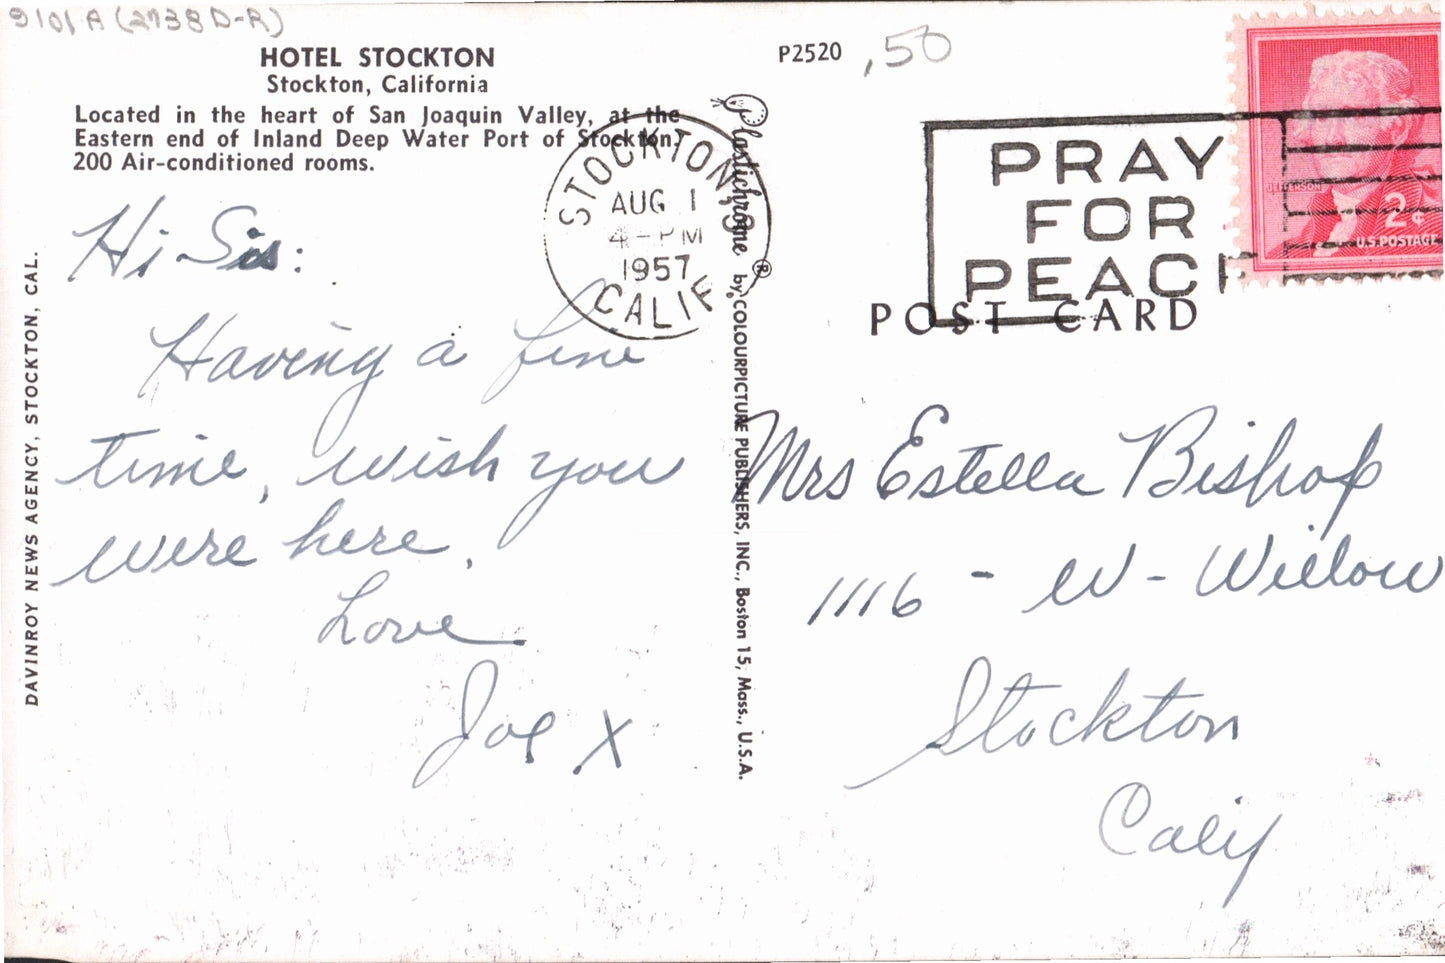 9101 A (2738 D-R)
HOTEL STOCKTON
Stockton, California
Located in the heart of San Joaquin Valley, at the
Eastern end of Inland Deep Water Port of Stockton.
200 Air-conditioned rooms.
Hi Sis:
Having a fine
time, wish you
were here.
Love
Joe X
DAVINROY NEWS AGENCY, STOCKTON, CAL.
STOCKTON,
AUG 1
4-PM
1957
CALIF
Plastichrome ® by COLOURPICTURE PUBLISHERS, INC., Boston 15, Mass., U.S.A.
P2520
,50
PRAY
FOR
PEACE
JEFFERSON
2¢
U.S. POSTAGE
POST CARD
Mrs Estella Bishop
1116 - W - Willow
Stockton
Calif